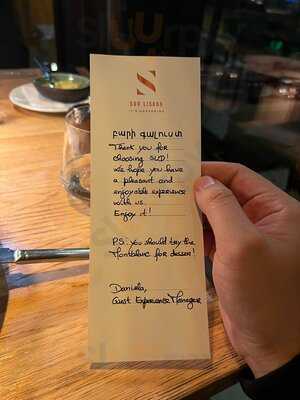 SUD LISBOA
բարի գալուստ
Thank you for
choosing SUD!
We hope you have
a pleasant and
enjoyable experience
with us.
Enjoy it!
P.S. you should try the
Montblanc for dessert!
Daniela,
Guest Experience Manager